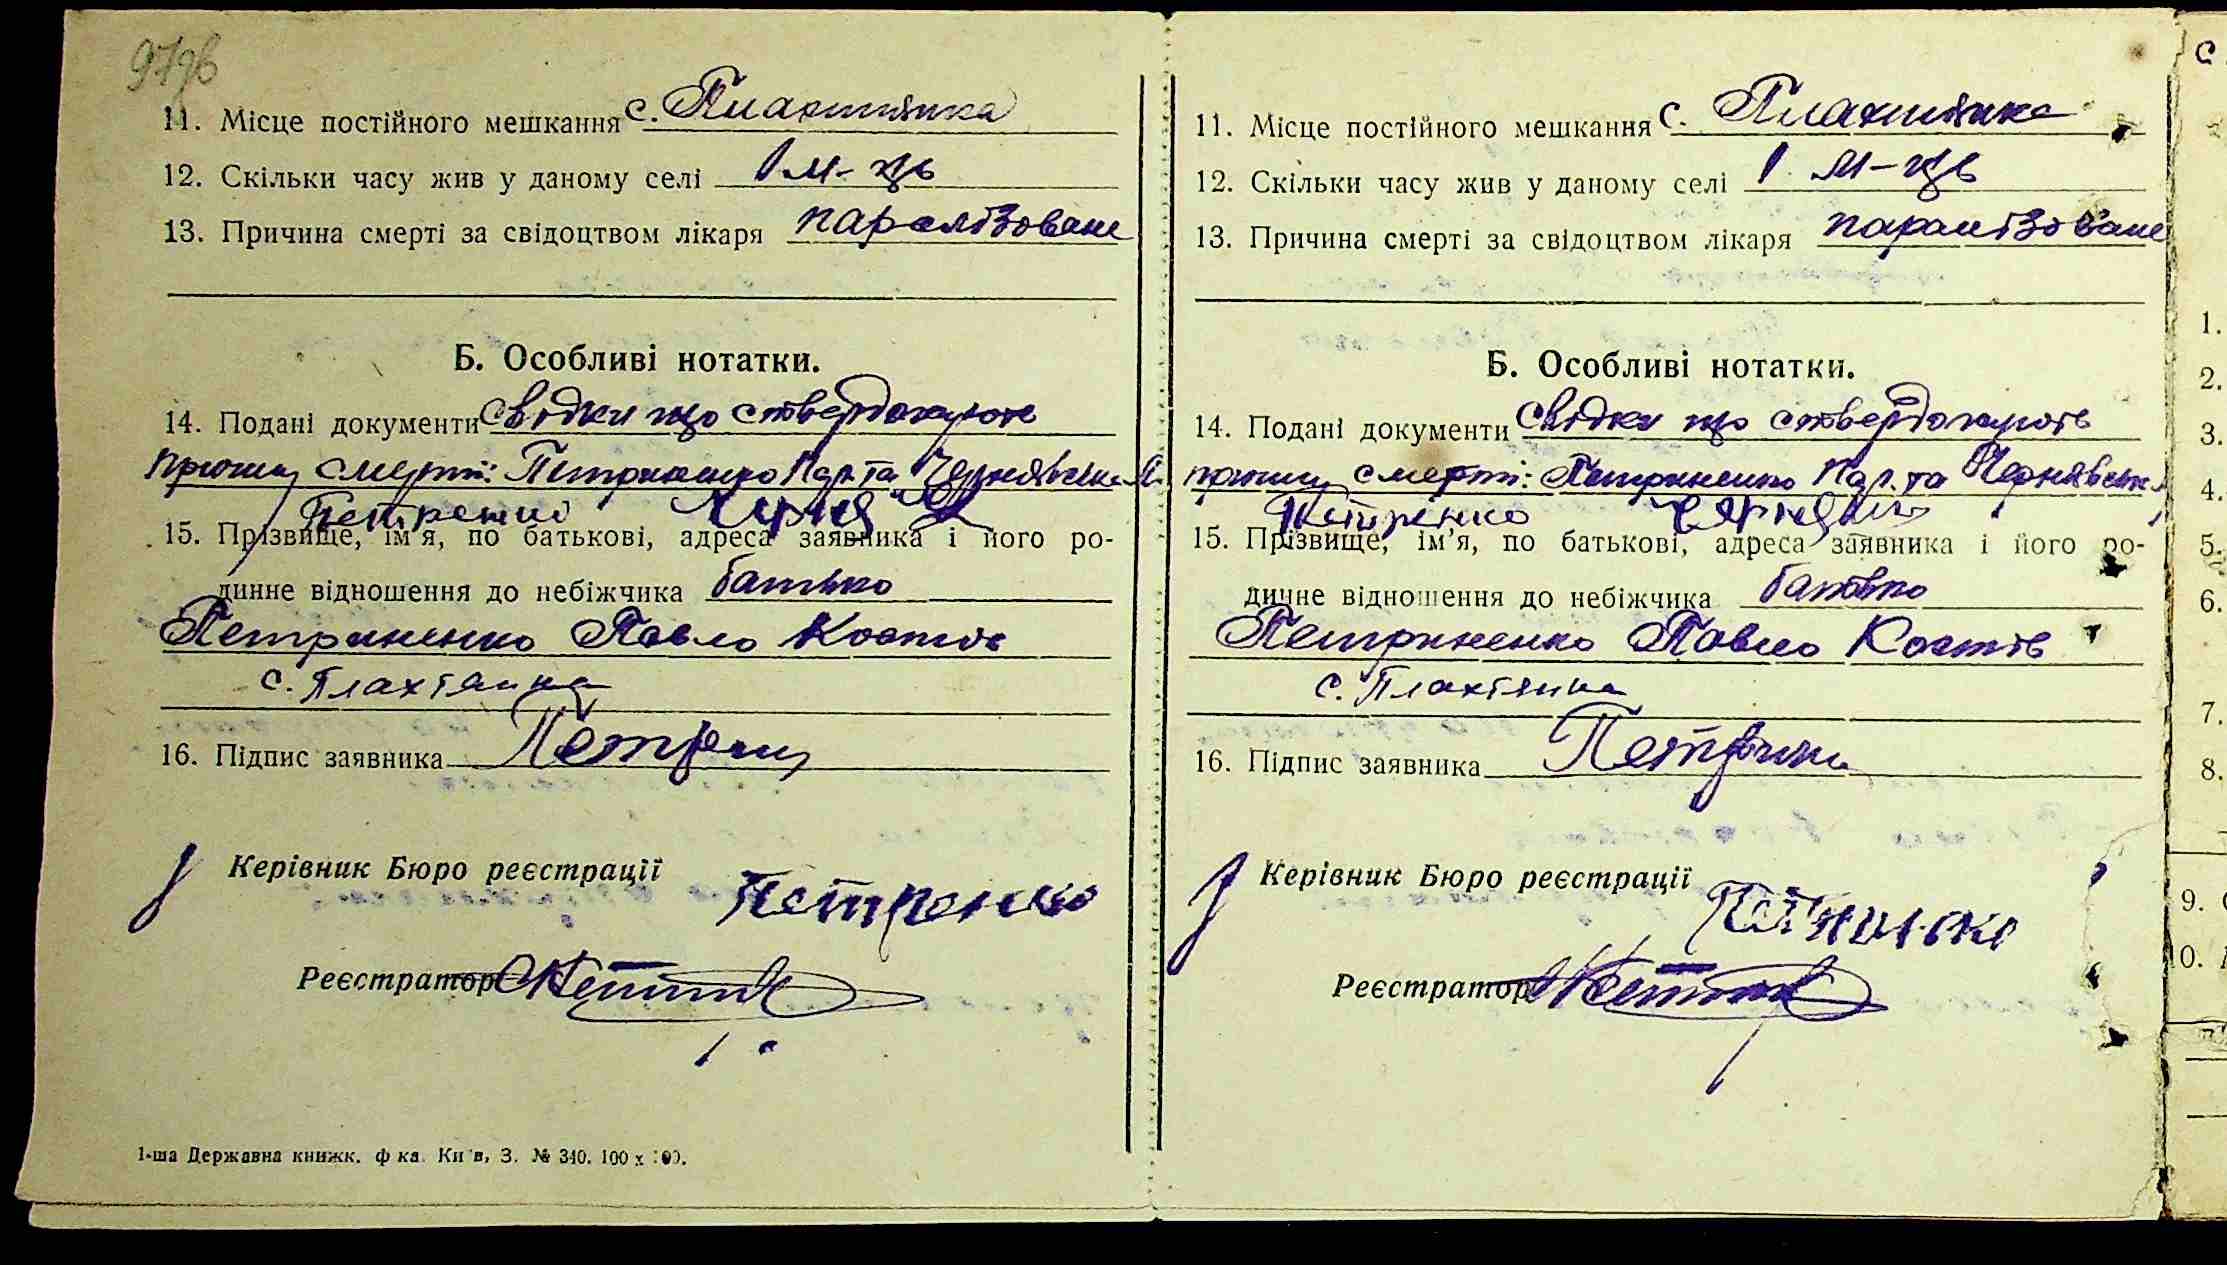 11. Місце постійного мешкання с. Плахтянка
12. Скільки часу жив у даному селі 1 м-ць
13. Причина смерті за свідоцтвом лікаря паралізоване
Б. Особливі нотатки.
14. Подані документи свідки що стверджують
смерті: Петриненко Пар. та
Петренко
15. Прізвище, ім'я, по батькові, адреса заявника і його ро-
динне відношення до небіжчика батько
Петриненко Павло Костів
с. Плахтянка
16. Підпис заявника
Керівник Бюро реєстрації Петренко
Реєстратор
1-ша Державна книжк. ф-ка. Київ, З. № 340. 100 х
11. Місце постійного мешкання с. Плахтянка
12. Скільки часу жив у даному селі 1 м-ць
13. Причина смерті за свідоцтвом лікаря паралізоване
Б. Особливі нотатки.
14. Подані документи свідки що стверджують
смерті: Петриненко Пар. та
Петренко
15. Прізвище, ім'я, по батькові, адреса заявника і його ро-
динне відношення до небіжчика батько
Петриненко Павло Костів
с. Плахтянка
16. Підпис заявника
Керівник Бюро реєстрації
Реєстратор
С
1.
2.
3.
4.
5.
6.
7.
8.
9.